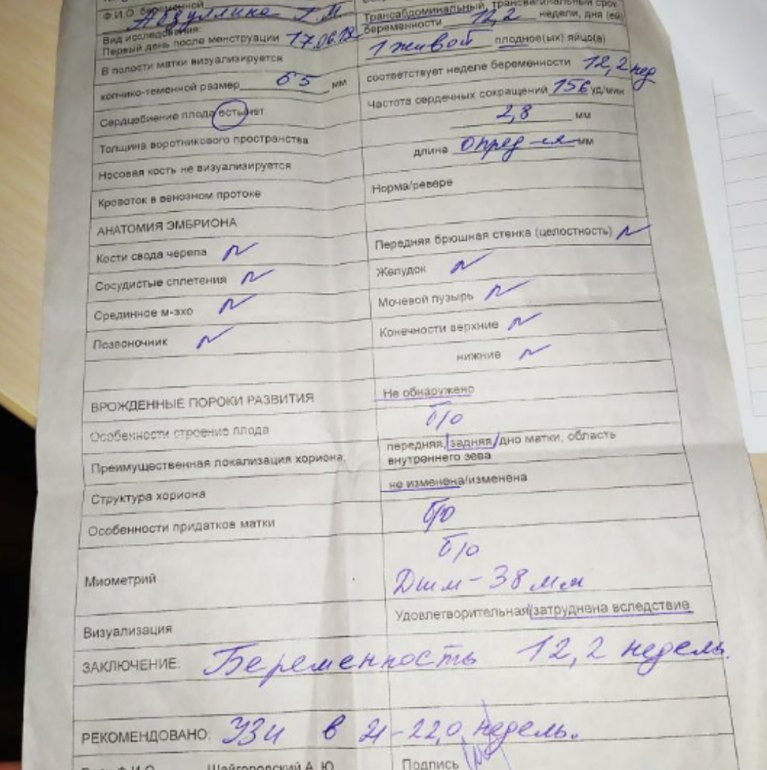 Ф.И.О. беременной Абдуллина Г.М
Трансабдоминальный, трансвагинальный срок
Вид исследования:
беременности 12,2 недели, дня (ей)
Первый день после менструации 17.06.18
1 живой плодное(ых) яйцо(а)
В полости матки визуализируется
копчико-теменной размер 65 мм
соответствует неделе беременности 12,2 нед
Сердцебиение плода есть/нет
Частота сердечных сокращений 156 уд/мин
Толщина воротникового пространства
2,8 мм
Носовая кость не визуализируется
длина опред-ся мм
Кровоток в венозном протоке
Норма/ревере
АНАТОМИЯ ЭМБРИОНА
Кости свода черепа N
Передняя брюшная стенка (целостность) N
Сосудистые сплетения N
Желудок N
Срединное м-эхо N
Мочевой пузырь N
Позвоночник N
Конечности верхние N
нижние N
ВРОЖДЕННЫЕ ПОРОКИ РАЗВИТИЯ
Не обнаружено
Особенности строение плода
б/о
Преимущественная локализация хориона:
передняя, задняя/дно матки, область
внутреннего зева
Структура хориона
не изменена/изменена
Особенности придатков матки
б/о
Миометрий
б/о
Дшм - 38 мм
Визуализация
Удовлетворительная/затруднена вследствие
ЗАКЛЮЧЕНИЕ: Беременность 12,2 недель.
РЕКОМЕНДОВАНО: УЗИ в 21-22,0 недель.
Ф.И.О. Шайгородский А. Ю.
Подпись